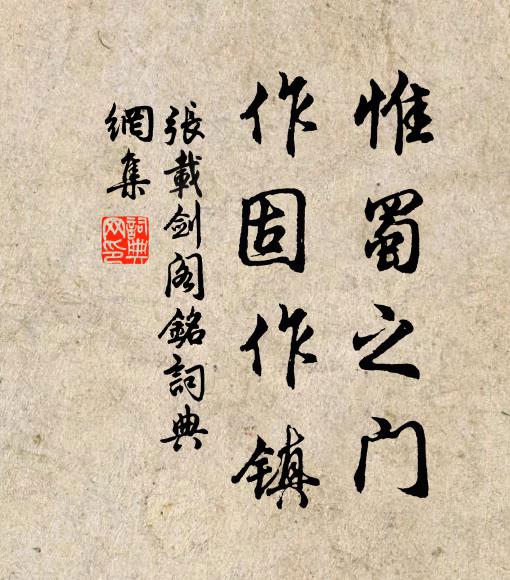 惟蜀之门
作固作镇
張載剑阁銘詞典
網集
詞典
网印